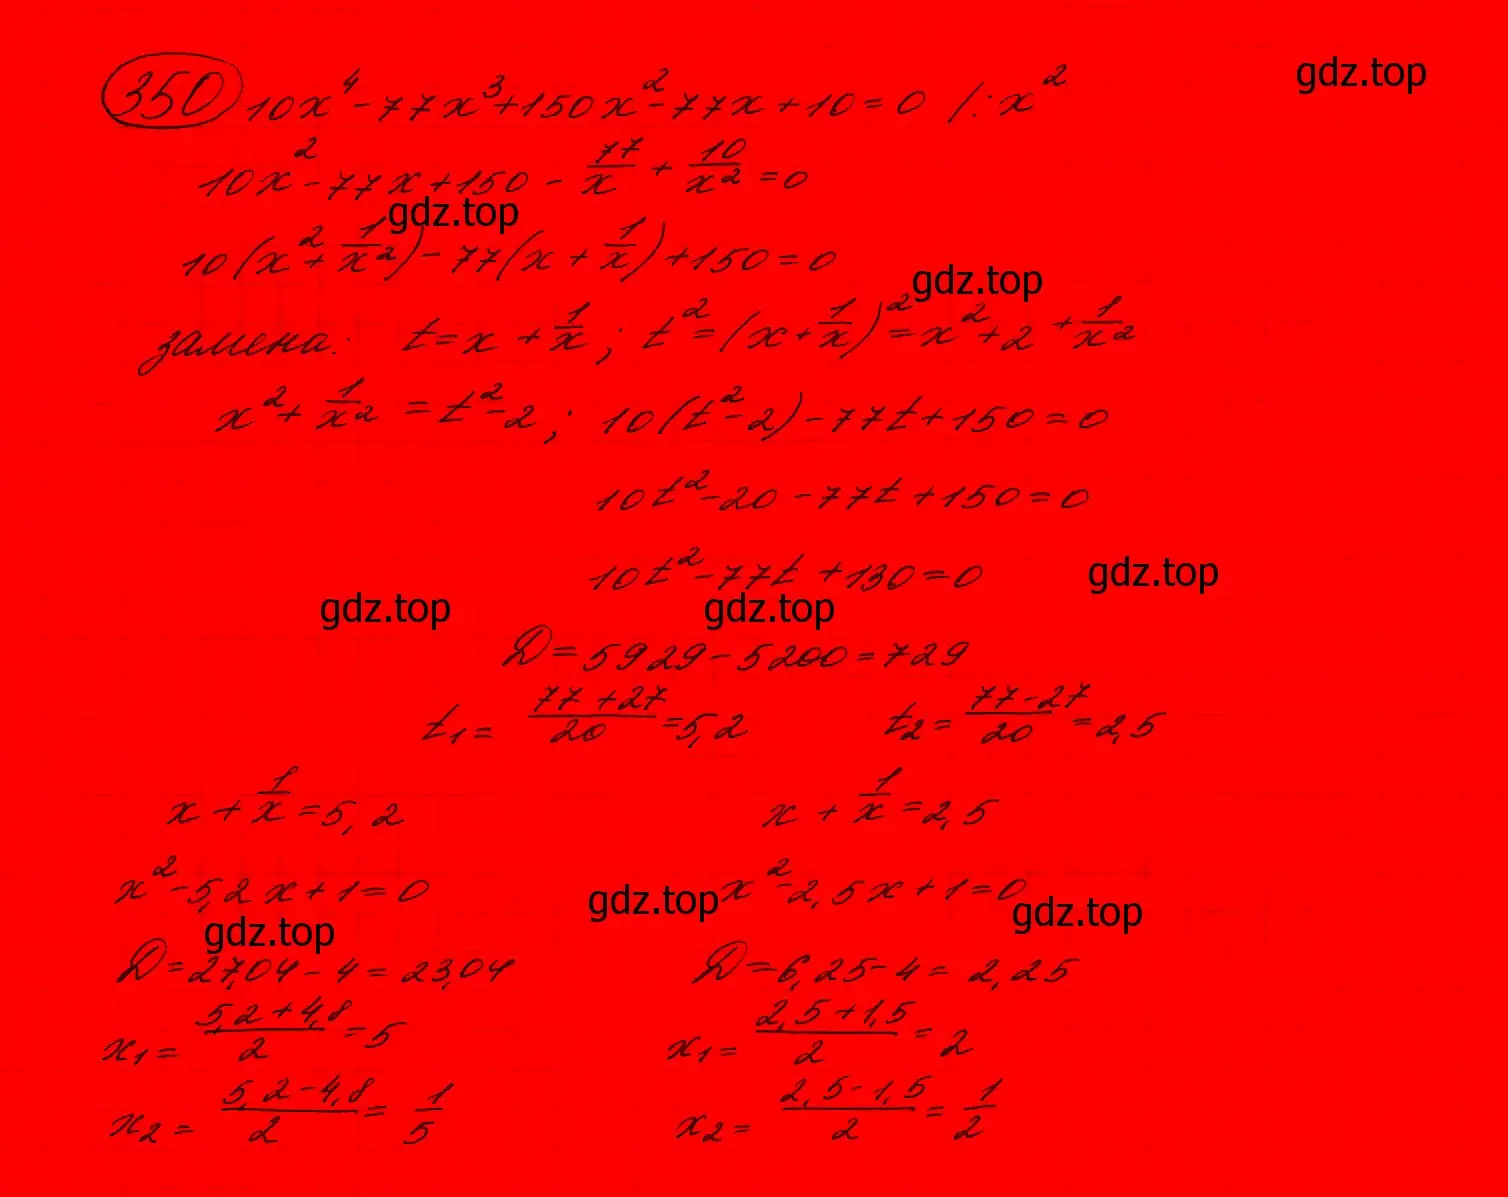 350 10x⁴-77x³+150x²-77x+10=0 /:x²
gdz.top
10x²-77x+150-77/x+10/x²=0
gdz.top
10(x²+1/x²)-77(x+1/x)+150=0
gdz.top
замена: t=x+1/x; t²=(x+1/x)²=x²+2+1/x²
x²+1/x²=t²-2; 10(t²-2)-77t+150=0
10t²-20-77t+150=0
10t²-77t+130=0
gdz.top
gdz.top gdz.top
D=5929-5200=729
t₁=(77+27)/20=5,2 t₂=(77-27)/20=2,5
x+1/x=5,2 x+1/x=2,5
x²-5,2x+1=0 x²-2,5x+1=0
gdz.top gdz.top
gdz.top
D=27,04-4=23,04 D=6,25-4=2,25
x₁=(5,2+4,8)/2=5 x₁=(2,5+1,5)/2=2
x₂=(5,2-4,8)/2=1/5 x₂=(2,5-1,5)/2=1/2